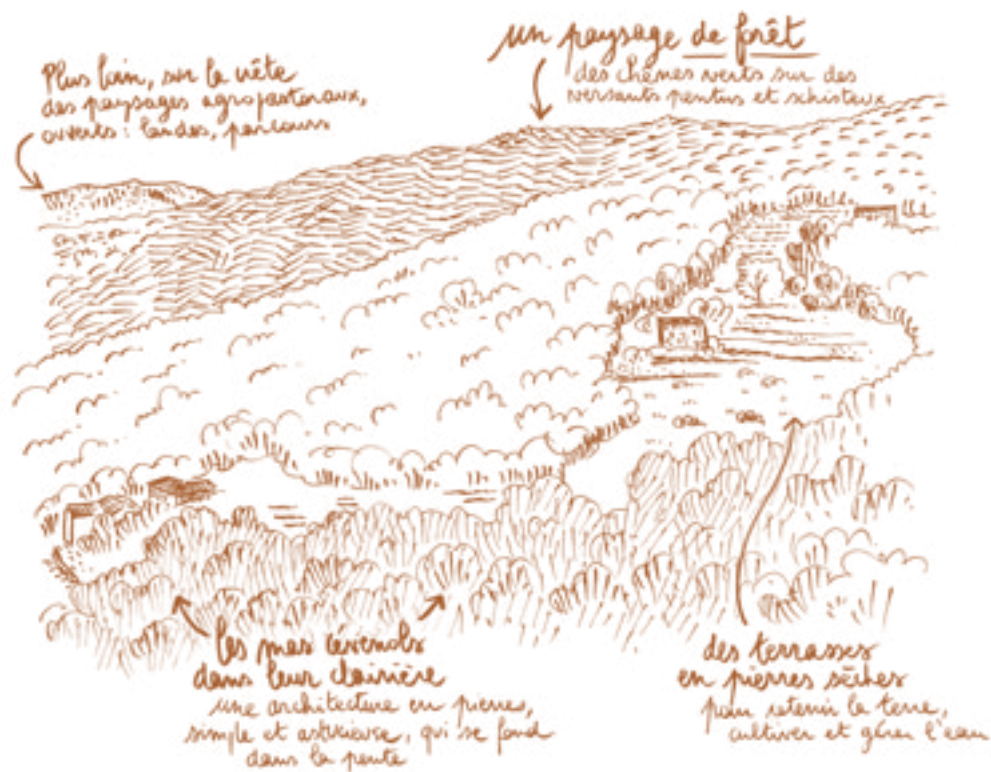 Plus loin, sur la crête
des paysages agropastoraux,
ouverts : landes, parcours
un paysage de forêt
des chênes verts sur des
versants pentus et schisteux
les mas cévenols
dans leur clairière
une architecture en pierre,
simple et astucieuse, qui se fond
dans la pente
des terrasses
en pierres sèches
pour retenir la terre,
cultiver et gérer l'eau